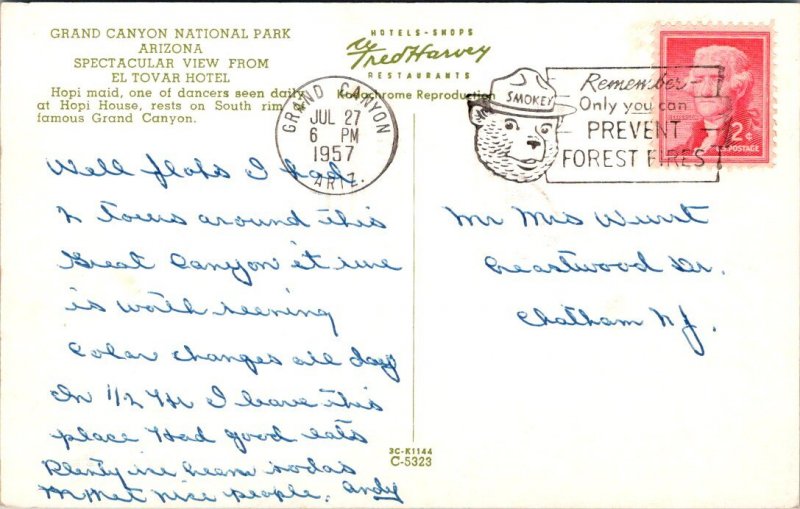 GRAND CANYON NATIONAL PARK
ARIZONA
SPECTACULAR VIEW FROM
EL TOVAR HOTEL
Hopi maid, one of dancers seen daily
at Hopi House, rests on South rim
famous Grand Canyon.
HOTELS-SHOPS
Fred Harvey
RESTAURANTS
Kodachrome Reproduction
GRAND CANYON
JUL 27
6 PM
1957
ARIZ.
SMOKEY
Remember-
Only you can
PREVENT
FOREST FIRES
2¢
U.S. POSTAGE
Well I had
2 tours around this
Great Canyon it
is worth
Color changes all day
In 1/2 Hr I leave this
place Had good eats
Plenty ice sodas
Met nice people. Andy
Mr Mrs Wurst
Dr.
Chatham N J.
3C-K1144
C-5323